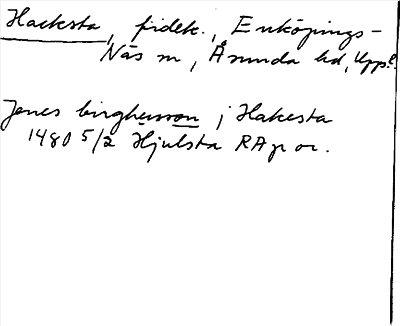 Hacksta, fidek., Enköpings-
Näs sn, Åsunda hd, Uppl.
Jenes birghersson j Hakesta
1480 5/2 Hjulsta RAp or.